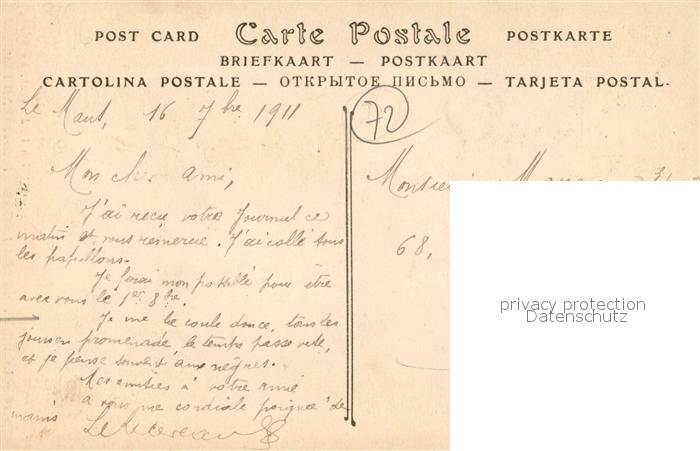 POST CARD Carte Postale POSTKARTE
BRIEFKAART — POSTKAART
CARTOLINA POSTALE — ОТКРЫТОЕ ПИСЬМО — TARJETA POSTAL.
Le Mans, 16 7bre 1911
72
Mon cher ami,
J'ai reçu votre Journal ce
matin et vous remercie. J'ai collé tous
les papillons.
Je ferai mon possible pour être
avec vous le 1er 8bre.
Je me la coule douce, tous les
jours en promenade le temps passe vite,
et je pense souvent aux nègres.
Mes amitiés à votre amie
à vous une cordiale poignée de
mains
Monsieur
68,
privacy protection
Datenschutz